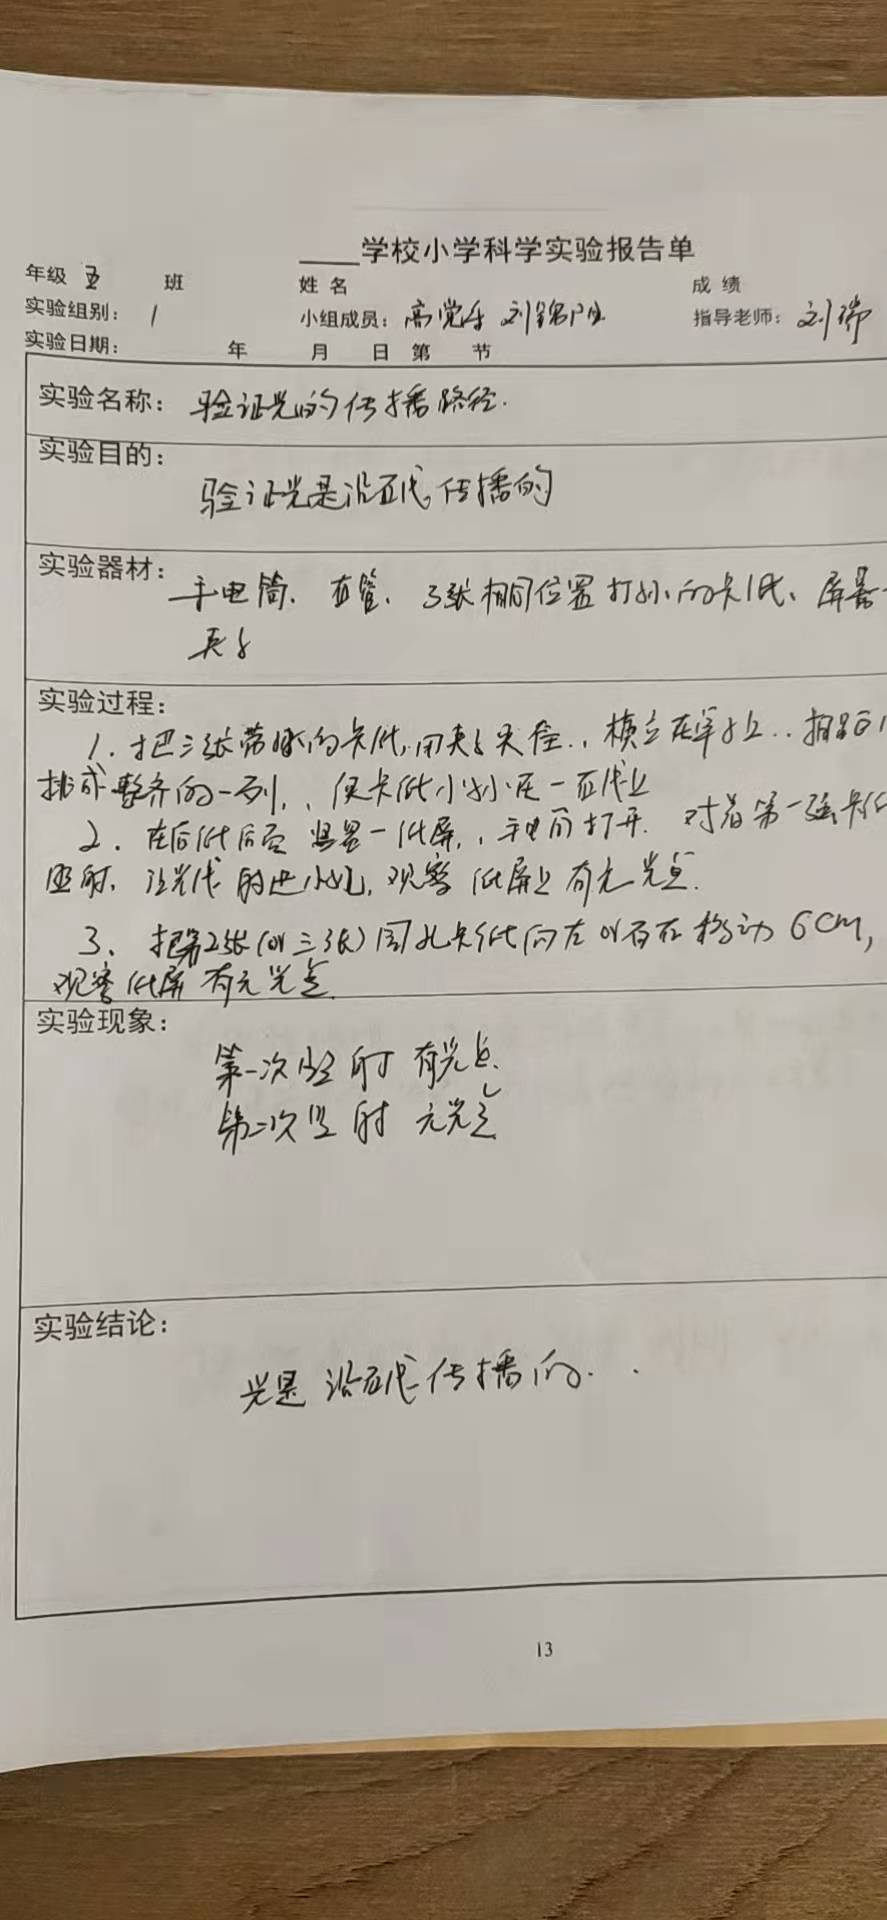 ____学校小学科学实验报告单
年级 五 班 姓名 成绩
实验组别：1 小组成员：高 刘锦阳 指导老师：刘瑞
实验日期： 年 月 日 第 节
实验名称：验证光的传播路径.
实验目的：
验证光是沿直线传播的
实验器材：
手电筒、直管、3张相同位置打孔的卡纸、屏幕
夹子
实验过程：
1.把三张带孔的卡纸,用夹子夹住,横立在桌子上
排成整齐的一列,使卡纸小孔在一直线上
2.在后 一纸屏,手电筒打开.对着第一张卡纸
照射,让光线射进小孔,观察纸屏上有无光点.
3、把第2张(或三张)圆孔卡纸向左或右移动6cm,
观察纸屏有无光点.
实验现象：
第一次照射 有光点.
第二次照射 无光点
实验结论：
光是沿直线传播的.
13